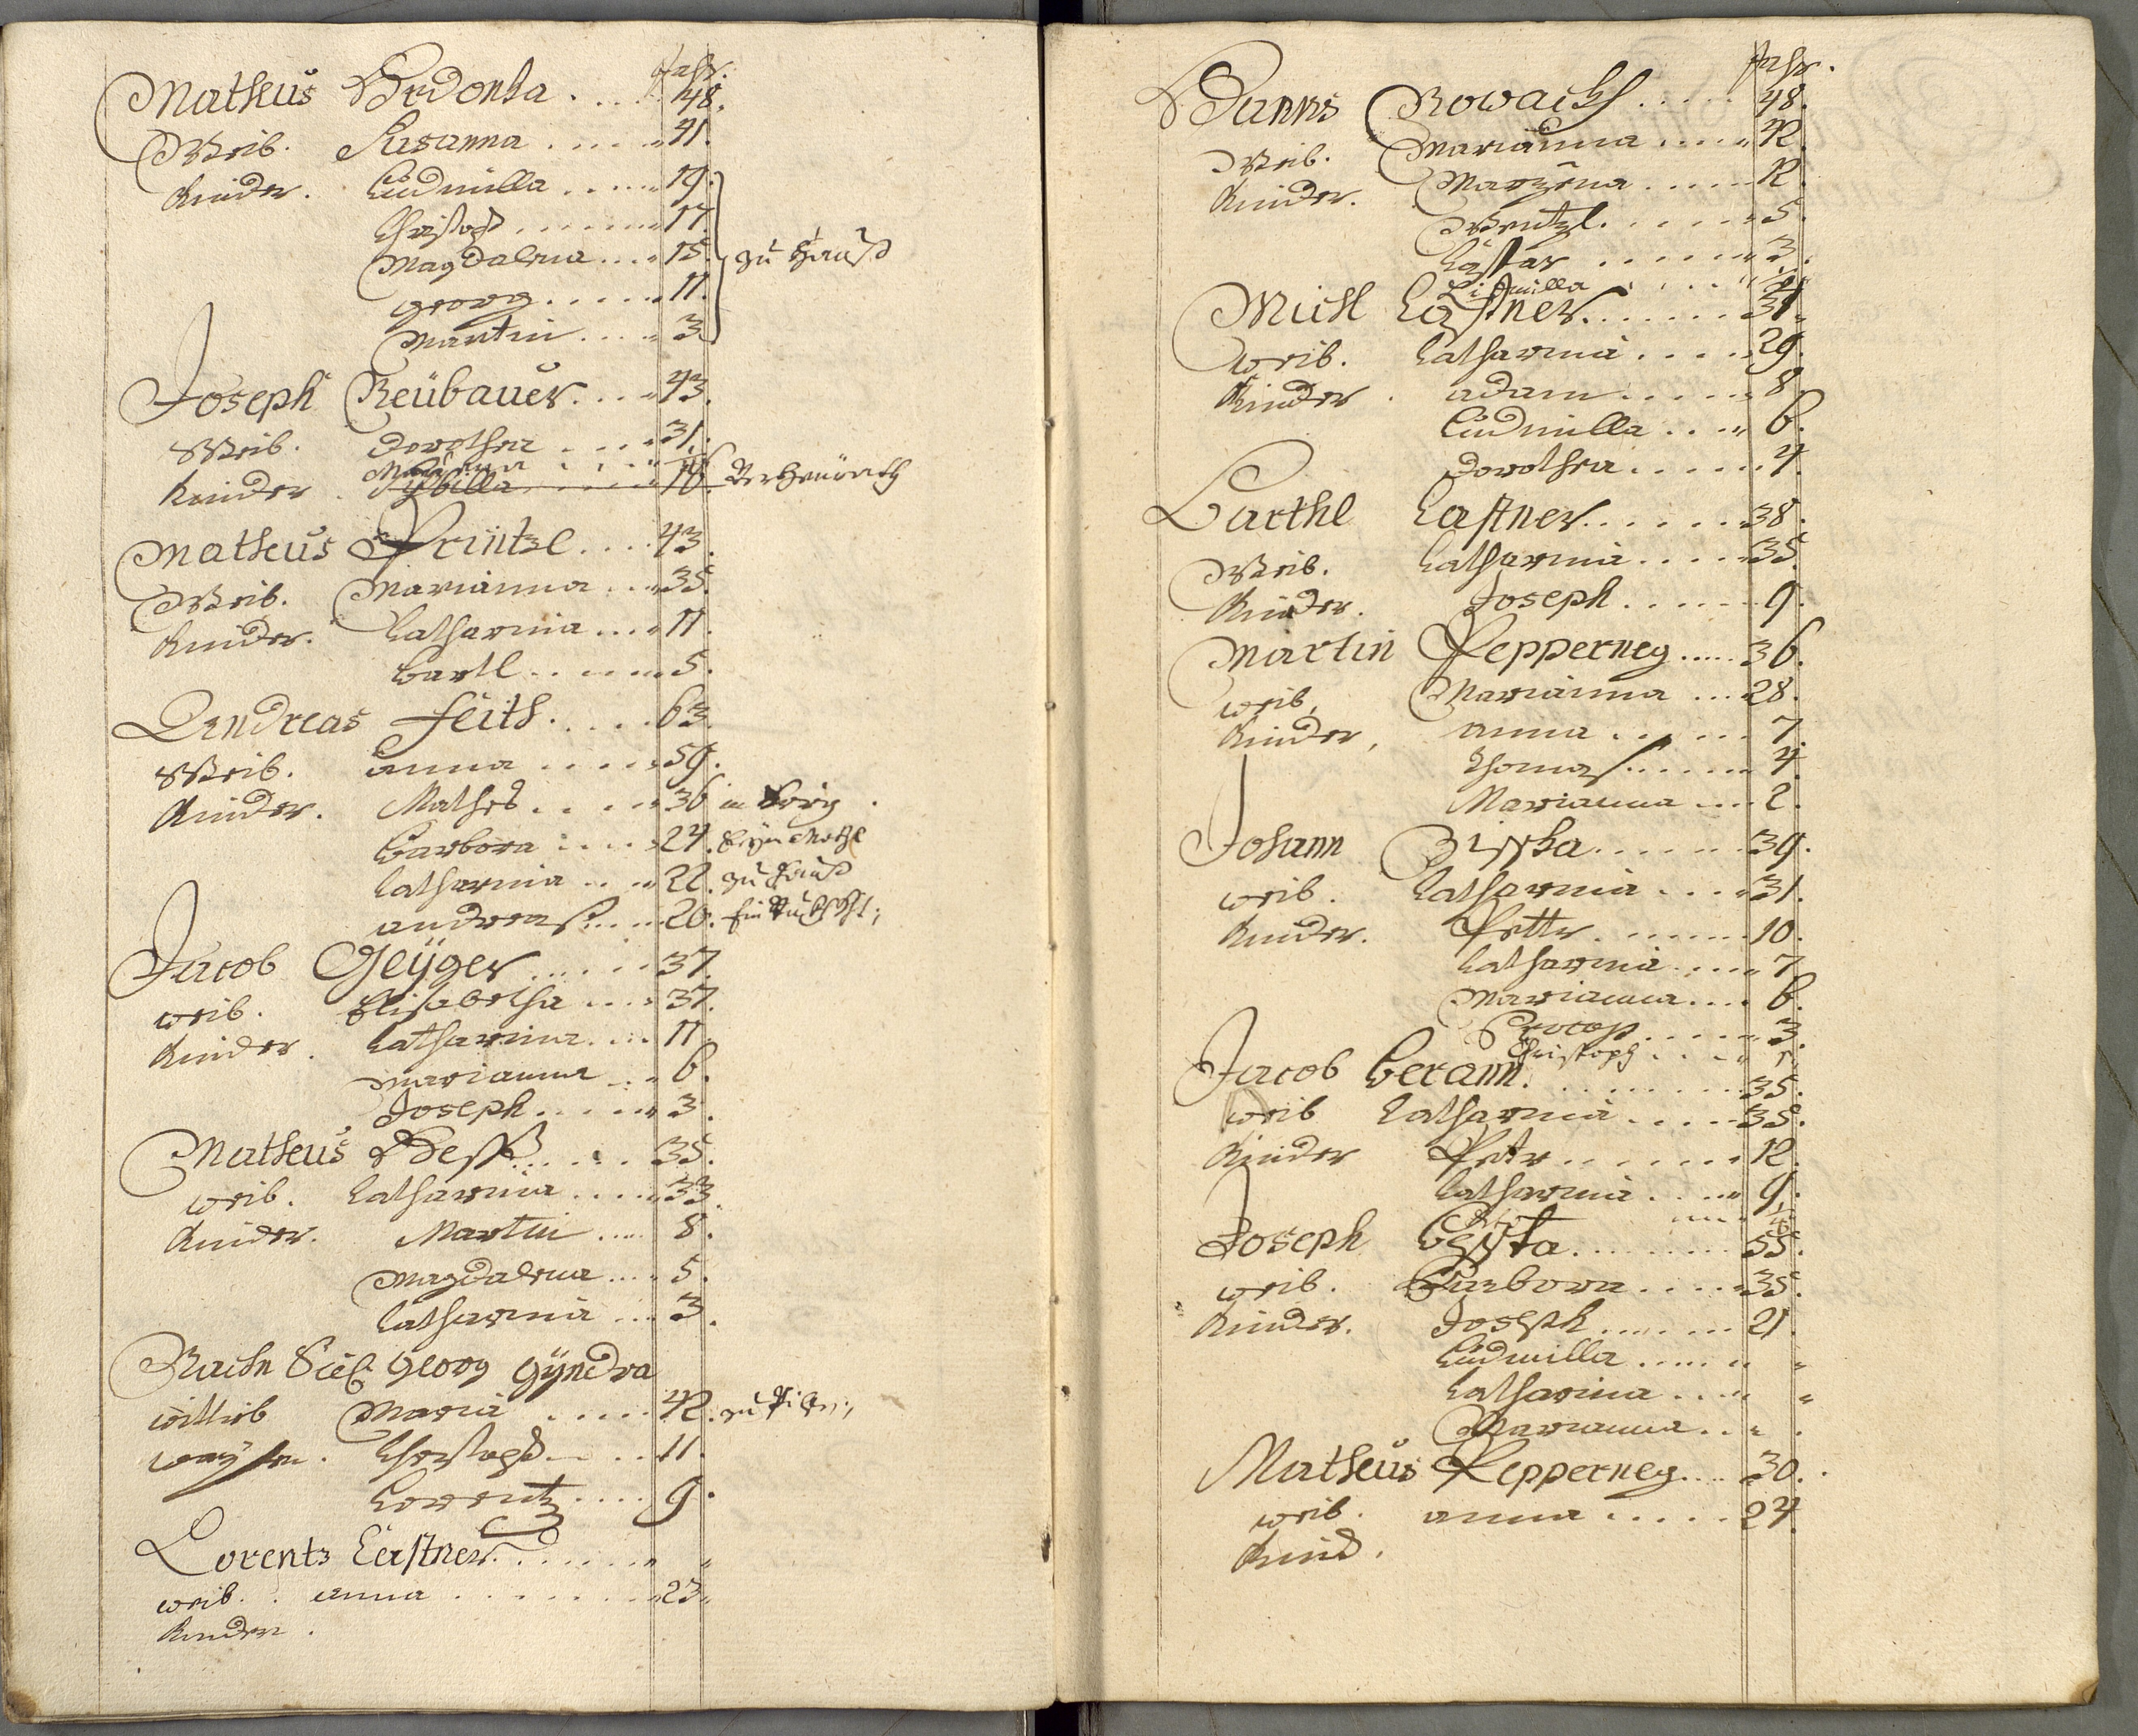 Jahr.
Matheus Hrdonka . . . . 48.
Weib. Susanna . . . . . 41.
Kinder. Ludmilla . . . . . 19.
Christoph . . . . . . . 17.
Magdalena . . . . 15. zu Hauß
Georg . . . . . . 11.
Martin . . . . . 3.
Joseph Neübauer . . . . 43.
Weib. Dorothea . . . . 31.
Kinder. Sybilla . . . . . 18. Verheürath
Matheus Printzl . . . . 43.
Weib. Marianna . . . 35.
Kinder. Catharina . . . . 11.
Bartl . . . . . . 5.
Andreas Feith . . . . 63.
Weib. Anna . . . . . 59.
Kinder. Mathes . . . . . 36 in
Barbora . . . . . 24.
Catharina . . . . 22. zu Hauß
Andreaß . . . . . 20.
Jacob Geÿger . . . . . . 37.
Weib. Elisabetha . . . . 37.
Kinder. Catharina . . . . 11.
Marianna . . . 6.
Joseph . . . . . . 3.
Matheus Heß . . . . . 35.
Weib. Catharina . . . . 33.
Kinder. Martin . . . . . 8.
Magdalena . . . . 5.
Catharina . . . . 3.
Nach Seel. Georg Gÿndra
Wittib Maria . . . . . 42.
Waysen. Christoph . . . . 11.
Lorentz . . . . . 9.
Lorentz Castner . . . . . . . "
Weib. Anna . . . . . . . 23.
Kinder.
Jahr.
Hanns Nowackh . . . . . 48.
Weib. Marianna . . . . . 42.
Kinder. Marzena . . . . . 12.
Wentzl . . . . . . 5.
Caspar . . . . . . 3.
Lidmilla . . . . . .
Michl Castner . . . . . . 31.
Weib. Catharina . . . . 29.
Kinder. Adam . . . . . 8.
Ludmilla . . . . 6.
Dorothea . . . . . 4.
Barthl Castner . . . . . . 38.
Weib. Catharina . . . . . 35.
Kinder. Joseph . . . . . 9.
Martin Pepperney . . . . . 36.
Weib. Marianna . . . 28.
Kinder. Anna . . . . . . 7.
Thomaß . . . . . . 4.
Marianna . . . . 2.
Johann Zisska . . . . . . 39.
Weib. Catharina . . . . 31.
Kinder. Petter . . . . . . . 10.
Catharina . . . . . 7.
Marianna . . . . 6.
Procop . . . . . . 3.
Christoph . . . .
Jacob Berann . . . . . . . . 35.
Weib Catharina . . . . . 35.
Kinder Peter . . . . . . . 12.
Catharina . . . . . 9.
Joseph . . . . . . . 55.
Weib. Barbora . . . . . 35.
Kinder. Joseph . . . . . . 21.
Ludmilla . . . . . "
Catharina . . . . "
Marianna . . "
Matheus Pepperney . . . . 30.
Weib. Anna . . . . . 24.
Kind.